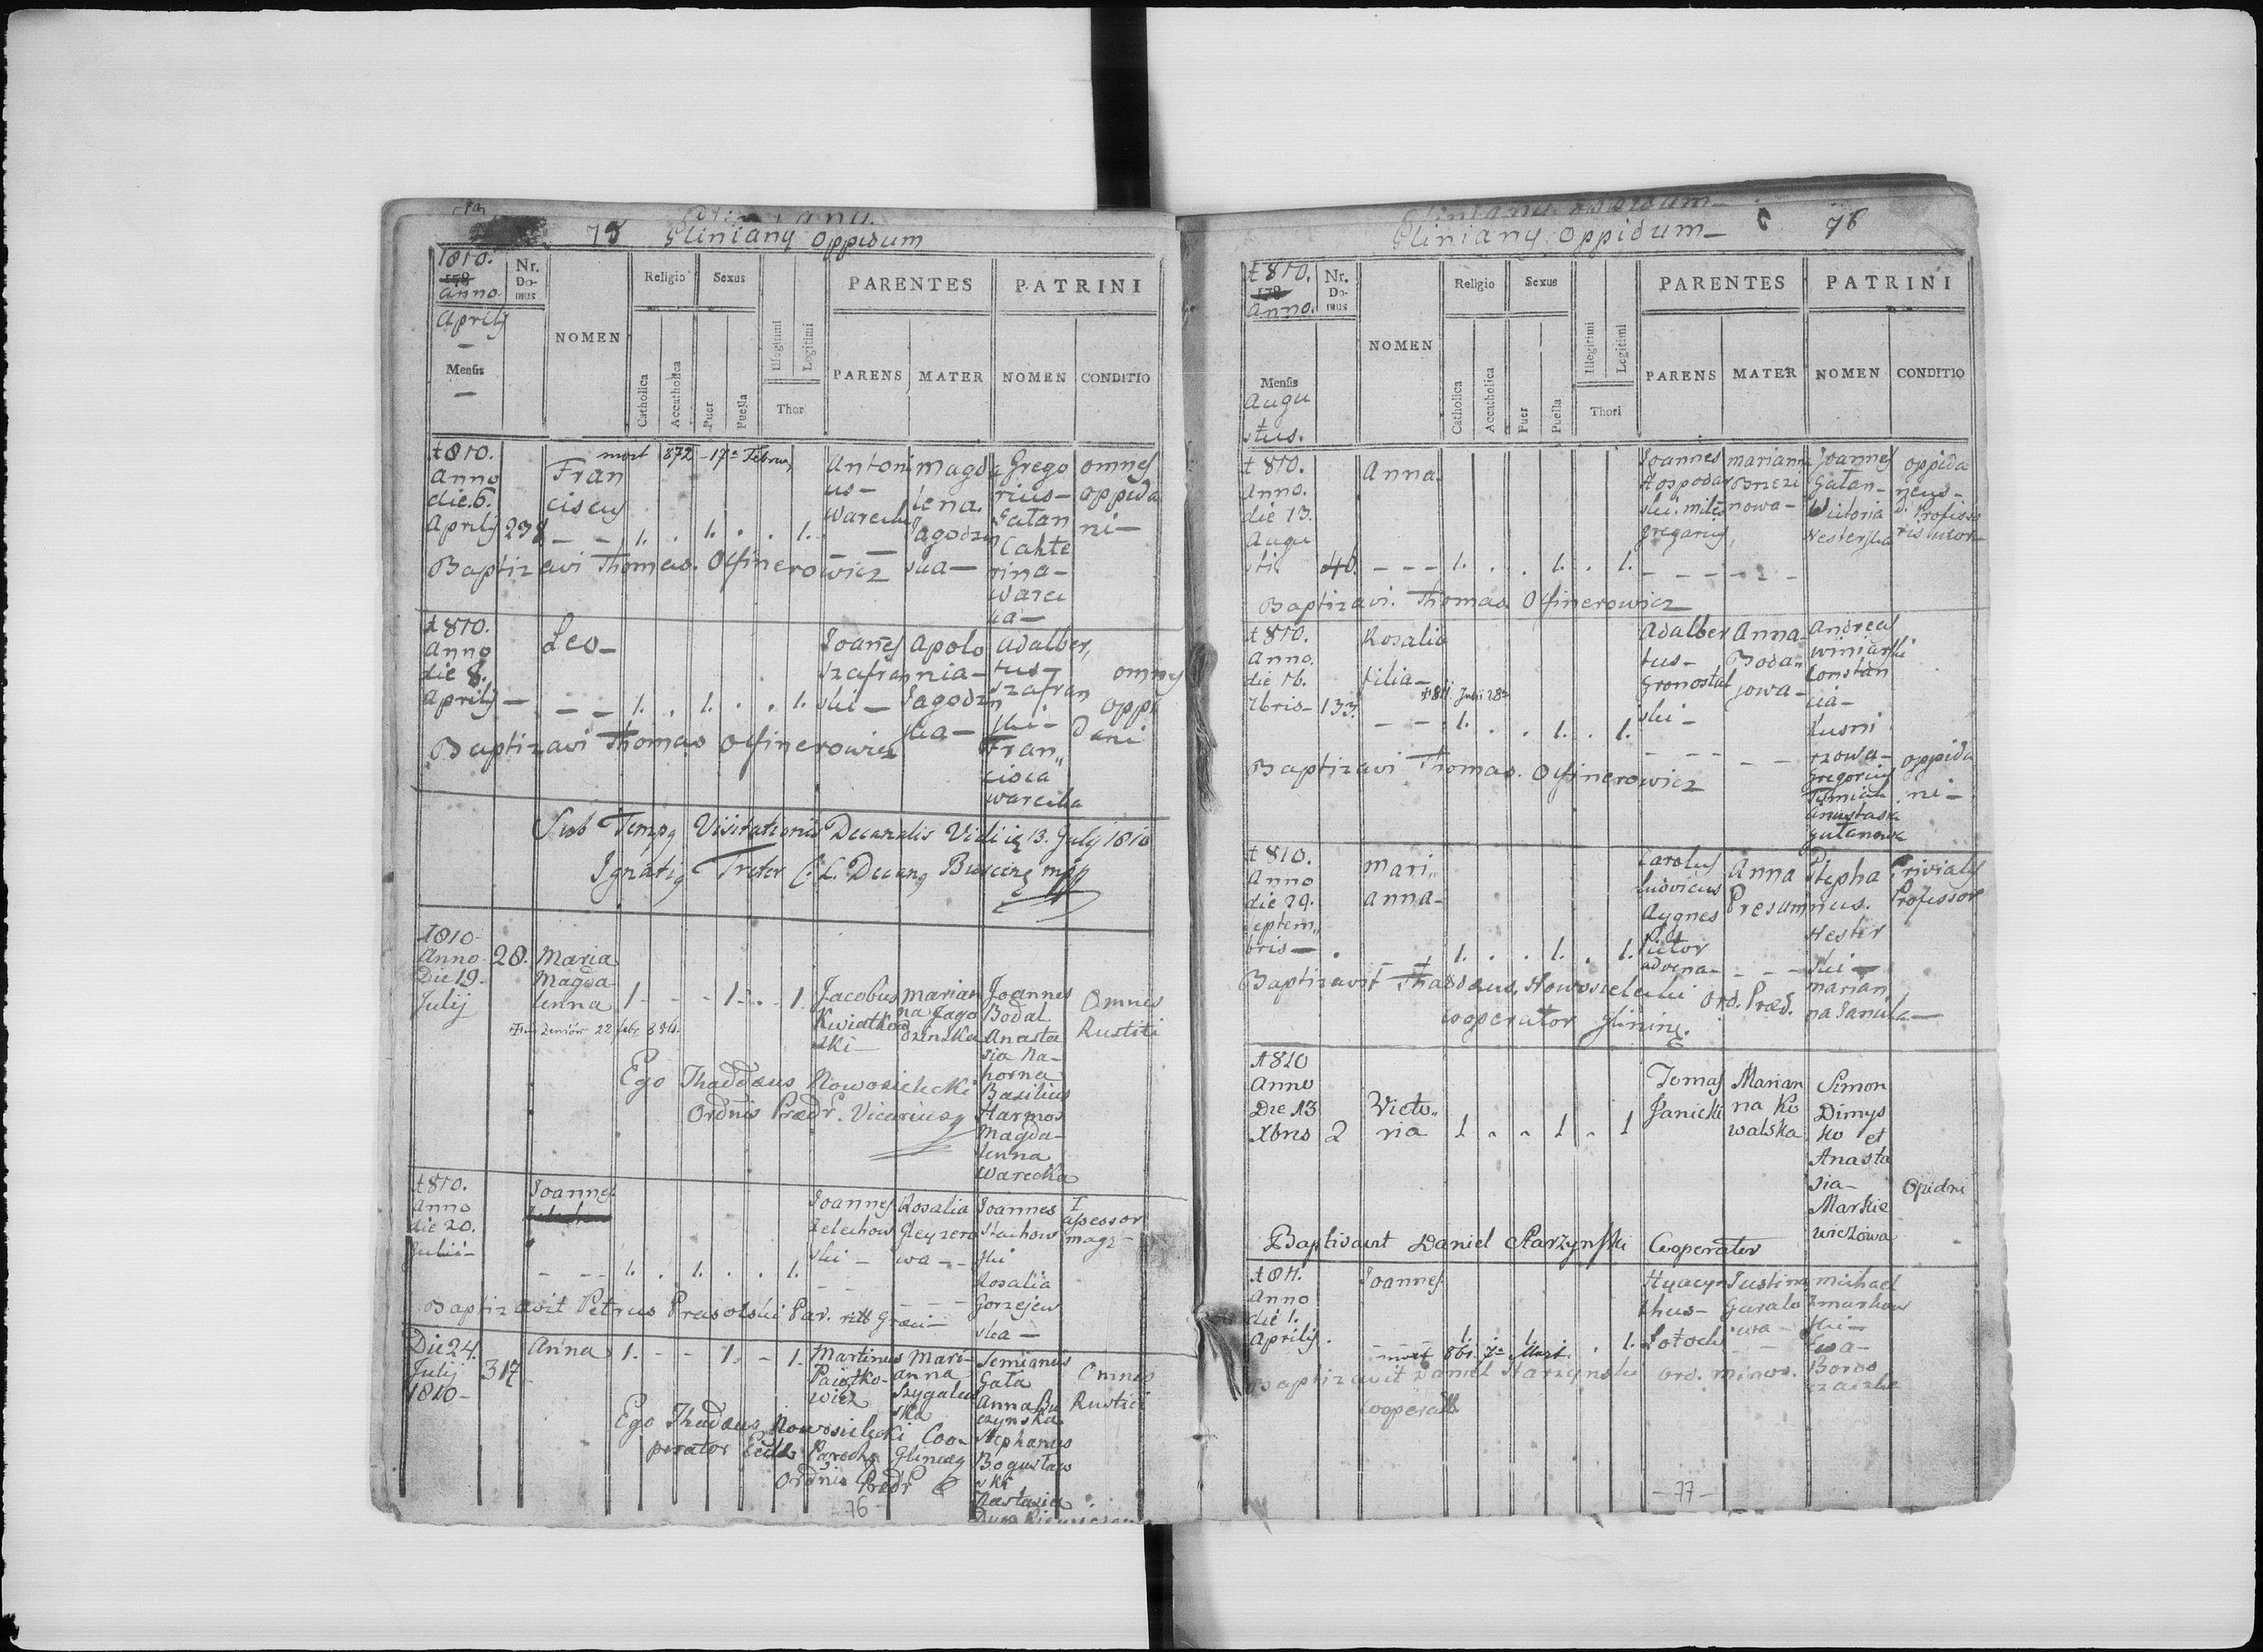 75 Gliniany Oppidum
1810.
Anno
Aprilj
Mensis
Nr. Domus
NOMEN
Religio
Catholica
Accatholica
Sexus
Puer
Puella
Illegitimi
Legitimi
Thori
PARENTES
PARENS
MATER
PATRINI
NOMEN
CONDITIO
1810.
Anno
die 6.
Aprilj
238
mort 872 - 17a
Fran
ciscus
1. . 1. . . 1.
Antoni
us -
Magda
lena
Jagodzin
ska -
Grego
rius -
Gatan
Cahte
rina -
Warec
ka -
omnes
oppida
ni -
Baptizavi Thomas Olfinerowicz
1810.
Anno
die 8.
Aprilj -
Leo -
1. . 1. . . 1.
Joanes
Szafran
ski -
Apolo
nia -
Jagodzin
ska -
Adalber,
tus -
Szafran
ski -
Fran„
cisca
Warecka
omnes
oppi
dani
Baptizavi Thomas Olfinerowicz
Sub Tempq Visitationis Decanalis Vidi 13. Julij 1810
Ignatiq Treter
1810
Anno
Die 19
Julij
28.
Maria
Magda
lenna
1 - - - 1 - . - 1
22 febr 856.
Jacobus
Kwiatkow
ski -
Marian
na Jago
dzinska
Joannes
Bodal
Anasta
sia Na-
horna
Basilius
Harmos
Magda-
lenna
Warecka
Omnes
Rustici
Ego Thaddæus Nowosielecki
Ordnis Prædr. Vicarius
1810.
Anno
die 20.
Julii -
Joannes
1. . 1. . . 1.
Joannes
Zelechow
ski -
Rosalia
Gleyzero
wa -
Joannes
Stachow
ski
Rosalia
Gorzejew
ska -
I
assessor
mag: -
Baptizavit Petrus Prasolski Par. ritt Græci -
Die 24.
Julij
1810 -
317
Anna
1. - - 1. - 1.
Martinus
Paiątko-
wicz
Mari-
anna
Szygalew
ska
Semianus
Gata
Anna Bu
czynska
Stephanus
Bogustaw
ski
Nastasia
Omnes
Rustici
Ego Thadæus Nowosielecki Coo-
perator
Ordnis Prædr
76
Gliniany Oppidum - 76
1810.
Anno.
Mensis
Augu
stus.
Nr. Domus
NOMEN
Religio
Catholica
Accatholica
Sexus
Puer
Puella
Illegitimi
Legitimi
Thori
PARENTES
PARENS
MATER
PATRINI
NOMEN
CONDITIO
1810.
Anno.
die 13.
Augu
sti.
40.
Anna
1. . . 1. . 1.
Joannes
Hospodar
ski. miles
gregarius,
Marianna
Brzezi
nowa -
Joannes
Gatan -
Wictoria
Nesterska
oppida
neus -
Professo
ris uxor
Baptizavi. Thomas Olfinerowicz
1810.
Anno.
die 16.
133.
Rosalia
filia -
1. . . 1. . 1.
Adalber
tus -
Gronostal
ski -
Anna
Boda„
jowa -
Andreas
Winiarski
Constan
cia -
Kusni
rzowa -
Gregorius
oppida
ni -
Baptizavi Thomas. Olfinerowicz
1810.
Anno
die 29.
Septem„
bris -
Mari„
anna -
1. . . 1. . 1.
Carolus
Ludovicus
Aygnes
Pictor
advena -
Anna
Presum
Stepha
nus.
Nester
ski -
Marian
na Janula -
Trivialis
Professor
Baptizavit Thaddæus. Nowosielecki Ord. Præd.
cooperator
1810
Anno
Die 13
Xbris
2
Victo„
ria
1 . . 1 . 1
Tomas
Janicki
Marian
na Ko
walska
Simon
Dimys
ko et
Anasta
sia -
Markie
wiczowa
Opidni
Baptisavit Daniel Starzynski Cooperator
1811.
Anno
die 1.
Aprilis.
Joannes
1. 1. . 1.
mort 861 7a Marti
Hyacyn
thus -
Lotocki
Justina
Gurala
wa -
Michael
Zmarkow
ski -
Ewa -
Boroo
Baptizavit Daniel Starzynski ord. minor.
cooperatt.
- 77 -